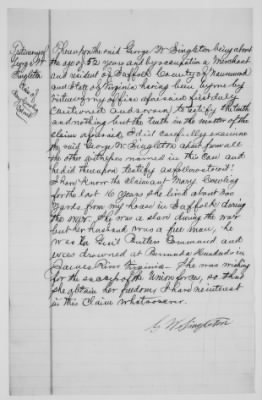 Testimony of
George W.
Singleton
Claim of
Thereupon the said George W. Singleton being about
the age of 52 years and by occupation a Merchant
and resident of Suffolk County of Nansemond
and State of Virginia having been by me by
virtue of my office aforesaid first duly
cautioned and sworn to testify the truth
and nothing but the truth in the matter of the
claim aforesaid I did carefully examine
the said George W. Singleton apart from all
the other witnesses named in this Case and
he did thereupon testify as follows to wit:
I have Know the claimant Mary
for the last 16 years she lived about 200
yards from my house in Suffolk during
the war. She was a slave during the war
but her husband was a free man, he
was in Genl Butlers Command and
was drowned at Bermuda Hundreds in
James River Virginia. She was wishing
for the success of the Union forces, so that
she obtain her freedom, I have no interest
in this Claim whatsoever.
G. W. Singleton